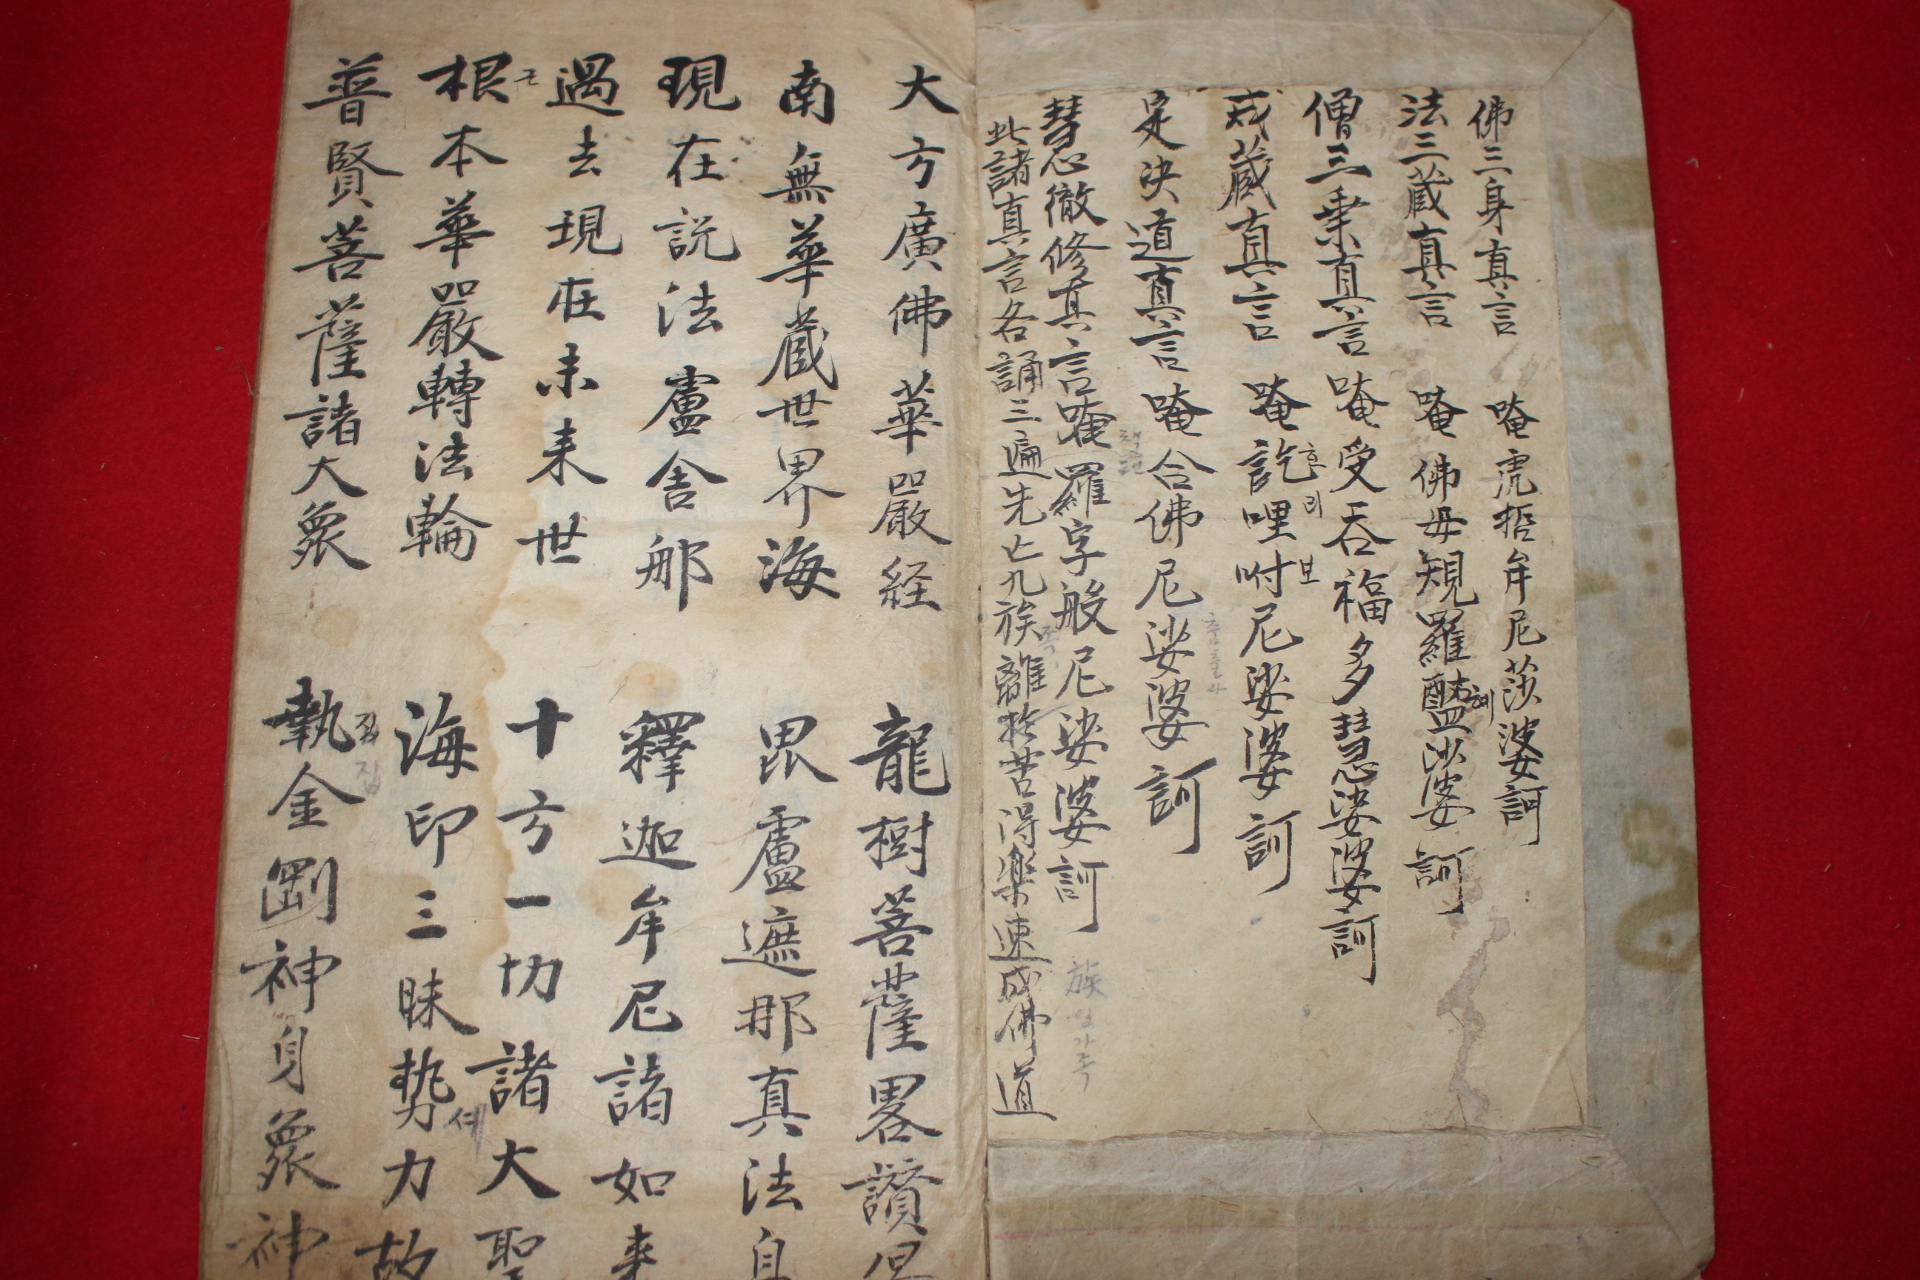 佛三身真言 唵虎哲牟尼莎婆訶
法三藏真言 唵佛毋規羅醯沙婆訶
혜
僧三乗真言唵受吞福多慧娑婆訶
戒藏真言 唵訖哩咐尼娑婆訶
흘
리
보
定决道真言唵合佛尼娑婆訶
慧徹修真言唵羅字般尼娑婆訶
此諸真言各誦三遍先亡九族離於苦得樂速成佛道
族
大方廣佛華嚴経 龍樹菩薩畧讃偈
南無華蔵世界海 毘盧遮那真法身
現在説法盧舎那 釋迦牟尼諸如来
過去現在未来世 十方一切諸大聖
根本華嚴轉法輪 海印三昧勢力故
근
세
普賢菩薩諸大衆 執金剛神身衆神
집
집